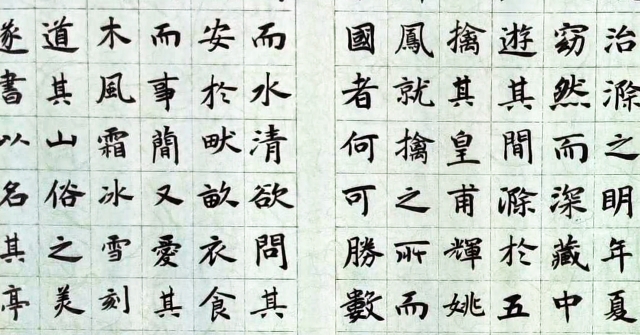 治滁之明年夏
窈然而深藏中
遊其間滁於五
擒其皇甫輝姚
鳳就擒之所而
國者何可勝數
而水清欲問其
安於畎畝衣食
而事簡又愛其
木風霜冰雪刻
道其山俗之美
遂書以名其亭